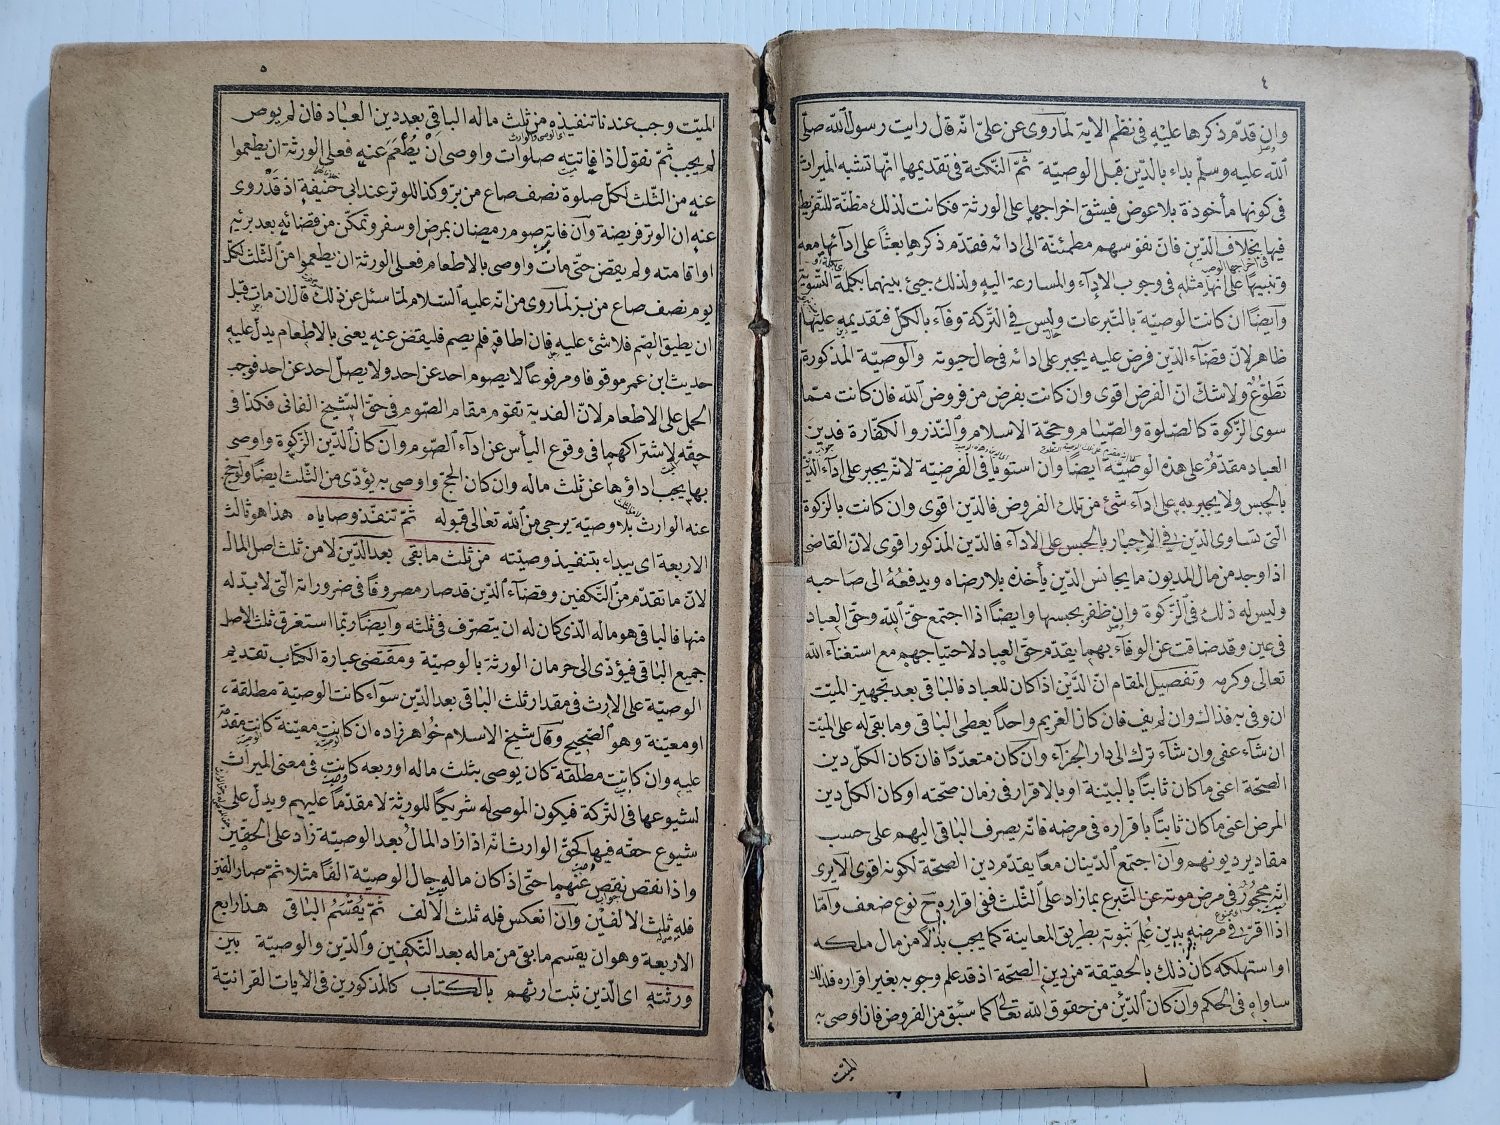 ٤
وان قدّم ذكرها عليه في نظم الآية لما روى عن على انّه قال رايت رسول الله صلّى
الله عليه وسلّم بداء بالدّين قبل لوصيّة ثمّ النّكتة فى تقديمها انّها تشبه الميراث
فى كونها مأخوذة بلا عوض فيشق اخراجها على الورثة فكانت لذلك مظنّة للتّفريط
فيها بخلاف الدّين فانّ نفوسهم مطمئنّة الى ادائه فقدّم ذكرها بعثًا على ادآئها معه
وتنبيهًا على انّها مثله فى وجوب الادآء والمسارعة اليه ولذلك جيئ بينهما بكلمة التّسوية
وايضًا ان كانت الوصيّة بالتّبرعات وليس فى التّركة وفآء بالكلّ فتقديمه عليها
ظاهر لانّ قضآء الدّين فرض عليه يجبر على ادائه فى حال حيوته والوصيّة المذكورة
تطوّع ولا شك انّ الفرض اقوى وان كانت بفرض من فروض الله فان كانت ممّا
سوى الزّكوة كالصّلوة والصّيام وحجّة الاسلام والنّذر والكفّارة فدين
العباد مقدّم على هذه الوصيّة ايضًا وان استويا فى الفرضية لانّه يجبر على ادآء الدّين
بالحبس ولا يجبر به على ادآء شئ من تلك الفروض فالدّين اقوى وان كانت بالزّكوة
الّتى تساوى الدّين فى الاجبار بالحبس على الادآء فالدّين المذكور اقوى لانّ القاضى
اذا وجد من مال المديون ما يجانس الدّين يأخذه بلا رضاه ويدفعه الى صاحبه
وليس له ذلك فى الزّكوة وان ظفر بجنسها وايضًا اذا اجتمع حقّ الله وحقّ العباد
فى عين وقد ضاقت عن الوفآء بهما يقدّم حقّ العباد لاحتياجهم مع استغنآء الله
تعالى وكرمه وتفصيل المقام انّ الدّين اذا كان للعباد فالباقى بعد تجهيز الميّت
ان وفى به فذاك وان لم يف فان كان الغريم واحدًا يعطى الباقى وما بقى له على الميّت
ان شآء عفى وان شآء ترك الى دار الجزآء وان كان متعدّدًا فان كان الكلّ دين
الصحّة اعنى ما كان ثابتًا بالبيّنة او بالاقرار فى زمان صحّته او كان الكلّ دين
المرض اعنى ما كان ثابتًا باقراره فى مرضه فانّه يصرف الباقى اليهم على حسب
مقادير ديونهم وان اجتمع الدّينان معًا يقدّم دين الصحّة لكونه اقوى الا يرى
انّه محجور فى مرض موته عن التّبرع بما زاد على الثّلث ففى اقراره ح نوع ضعف وامّا
اذا اقرّ فى مرضه بدين علم ثبوته بطريق المعاينة كما يجب بدلا من مال ملكه
او استهلكه كان ذلك بالحقيقة من دين الصحّة اذ قد علم وجوبه بغير اقراره فلذلك
ساواه فى الحكم وان كان الدّين من حقوق الله تعالى كما سبق من الفروض فان اوصى به
الميّت
٥
الميّت وجب عندنا تنفيذه من ثلث ماله الباقى بعد دين العباد فان لم يوص
لم يجب ثمّ نقول اذا فاتته صلوات واوصى ان يطعم عنه فعلى الورثة ان يطعموا
عنه من الثّلث لكلّ صلوة نصف صاع من برّ وكذا للوتر عند ابى حنيفة اذ قد روى
عنه ان الوتر فريضة وان فاته صوم رمضان بمرض او سفر وتمكّن من قضائه بعد برئه
او اقامته ولم يقض حتّى مات واوصى بالاطعام فعلى الورثة ان يطعموا من الثّلث لكلّ
يوم نصف صاع من برّ لما روى من انّه عليه السّلام لمّا سئل عن ذلك قال ان مات قبل
ان يطيق الصّوم فلا شئ عليه فان اطاق فلم يصم فليقض عنه يعنى بالاطعام يدلّ عليه
حديث ابن عمر موقوفا ومرفوعًا لا يصوم احد عن احد ولا يصلّ احد عن احد فوجب
الحمل على الاطعام لانّ الفدية تقوم مقام الصّوم فى حقّ الشّيخ الفانى فكذا فى
حقّه لاشتراكهما فى وقوع اليأس عن ادآء الصّوم وان كان الدّين الزّكوة واوصى
بها يجب اداؤها عن ثلث ماله وان كان الحجّ واوصى به يؤدّى من الثّلث ايضًا ولو حجّ
عنه الوارث بلا وصيّة يرجى من الله تعالى قبوله ثمّ تنفّذ وصاياه هذا هو ثالث
الاربعة اى يبداء بتنفيذ وصيّته من ثلث ما بقى بعد الدّين لا من ثلث اصل المال
لانّ ما تقدّم من التّكفين وقضآء الدّين قد صار مصروفًا فى ضروراته الّتى لا بدّ له
منها فالباقى هو ماله الّذى كان له ان يتصرّف فى ثلثه وايضًا ربّما استغرق ثلث الاصل
جميع الباقى فيؤدّى الى حرمان الورثة بالوصيّة ومقتضى عبارة الكتاب تقديم
الوصيّة على الارث فى مقدار ثلث الباقى بعد الدّين سوآء كانت الوصيّة مطلقة،
او معيّنة وهو الصّحيح وقال شيخ الاسلام خواهرزاده ان كانت معيّنة كانت مقدّمة
عليه وان كانت مطلقة كان يوصى بثلث ماله او ربعه كانت فى معنى الميراث
لشيوعها فى التّركة فيكون الموصى له شريكًا للورثة لا مقدّمًا عليهم ويدلّ على
شيوع حقّه فيها كحقّ الوارث انّه اذا زاد المال بعد الوصيّة زاد على الحقّين
واذا نقص نقص عنهما حتّى اذا كان ماله حال الوصيّة الفًا مثلا ثمّ صار الفين
فله ثلث الالفين وان انعكس فله ثلث الالف ثمّ يقسم الباقى هذا رابع
الاربعة وهو ان يقسم ما بقى من ماله بعد التّكفين والدّين والوصيّة بين
ورثته اى الّذين ثبت ارثهم بالكتاب كالمذكورين فى الايات القرانيّة